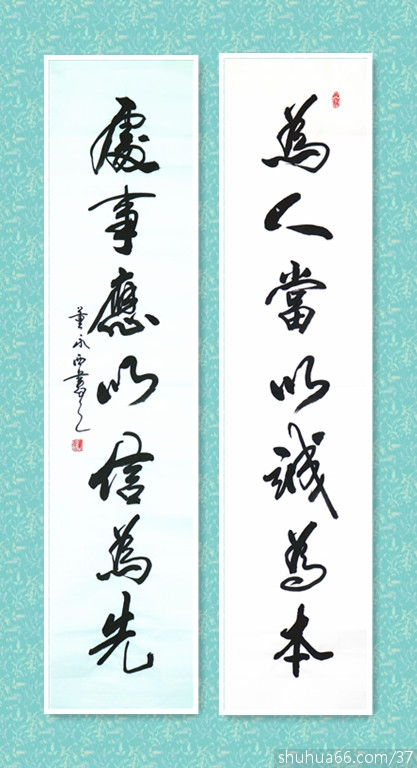 為人當以誠為本
處事應以信為先
董永西書
shuhua66.com/37